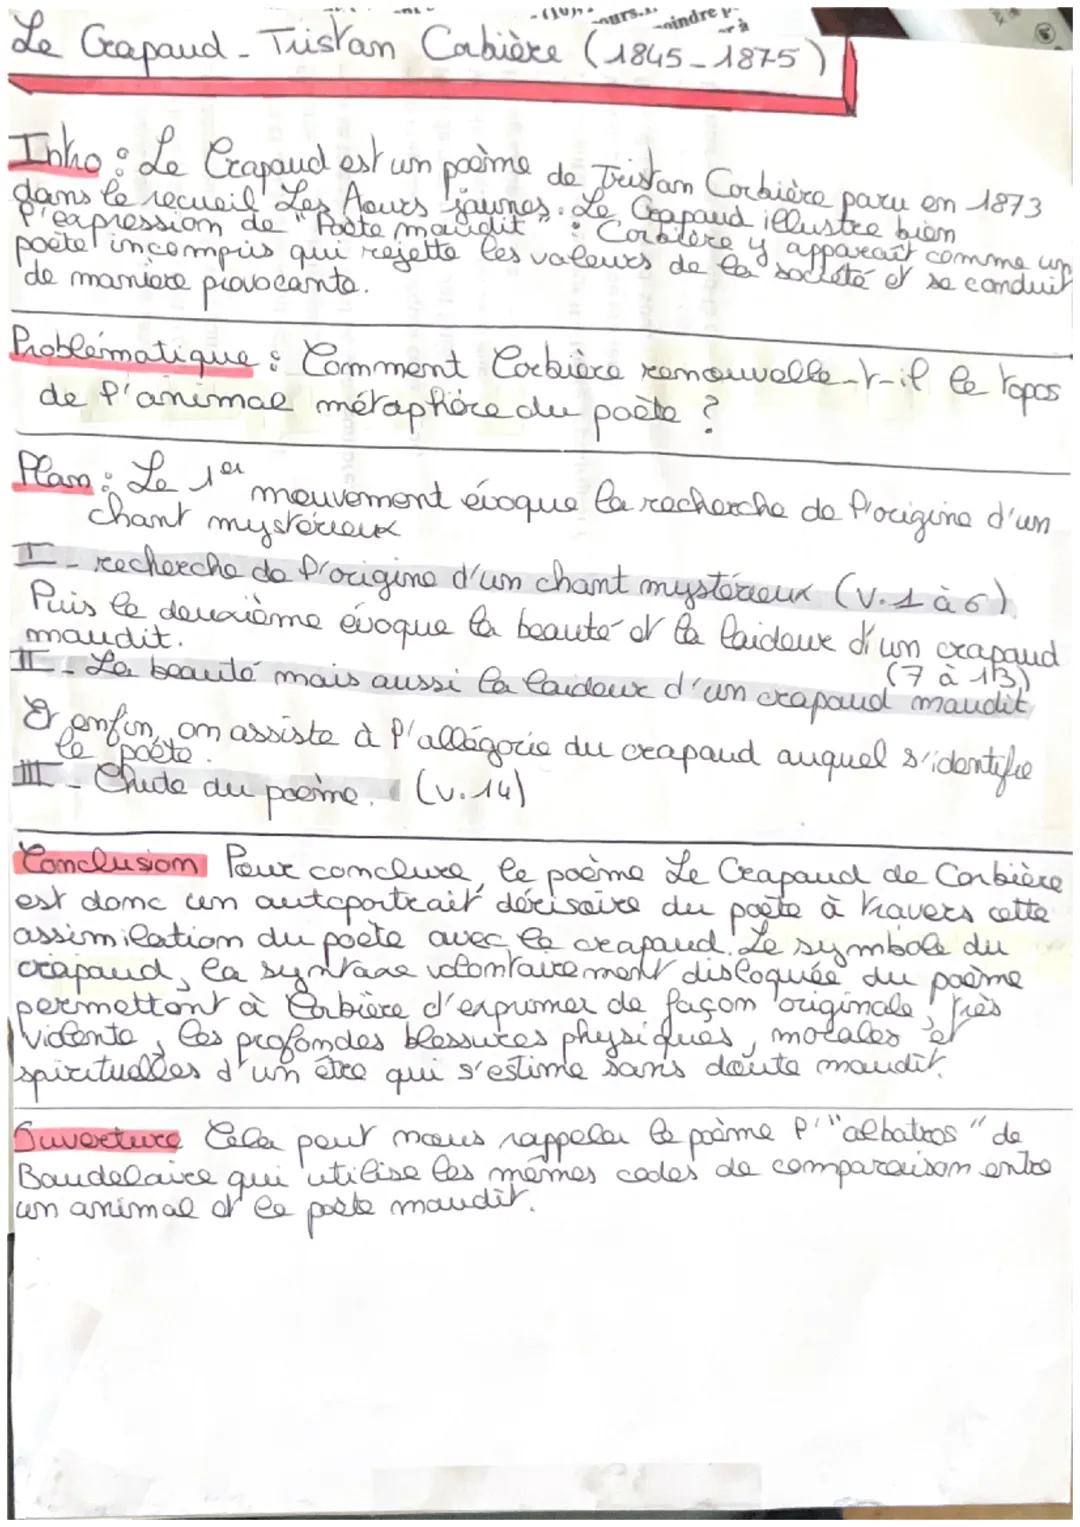 Le Crapaud - Tristan Corbière (1845-1875)
Intro : Le Crapaud est un poème de Tristan Corbière paru en 1873
dans le recueil Les Amours jaunes. Le Crapaud illustre bien
l'expression de "Poète maudit" : Corbière y apparaît comme un
poète incompris qui rejette les valeurs de la société et se conduit
de manière provocante.
Problématique : Comment Corbière renouvelle-t-il le topos
de l'animal métaphore du poète ?
Plan : Le 1er mouvement évoque la recherche de l'origine d'un
chant mystérieux
I - recherche de l'origine d'un chant mystérieux (v.1 à 6)
Puis le deuxième évoque la beauté et la laideur d'un crapaud
maudit.
(7 à 13)
II - La beauté mais aussi la laideur d'un crapaud maudit
Et enfin, on assiste à l'allégorie du crapaud auquel s'identifie
le poète.
III - Chute du poème. (v.14)
Conclusion Pour conclure, le poème Le Crapaud de Corbière
est donc un autoportrait dérisoire du poète à travers cette
assimilation du poète avec le crapaud. Le symbole du
crapaud, la syntaxe volontairement disloquée du poème
permettent à Corbière d'exprimer de façon originale, très
violente, les profondes blessures physiques, morales et
spirituelles d'un être qui s'estime sans doute maudit.
Ouverture Cela peut nous rappeler le poème l'"albatros" de
Baudelaire qui utilise les mêmes codes de comparaison entre
un animal et le poète maudit.